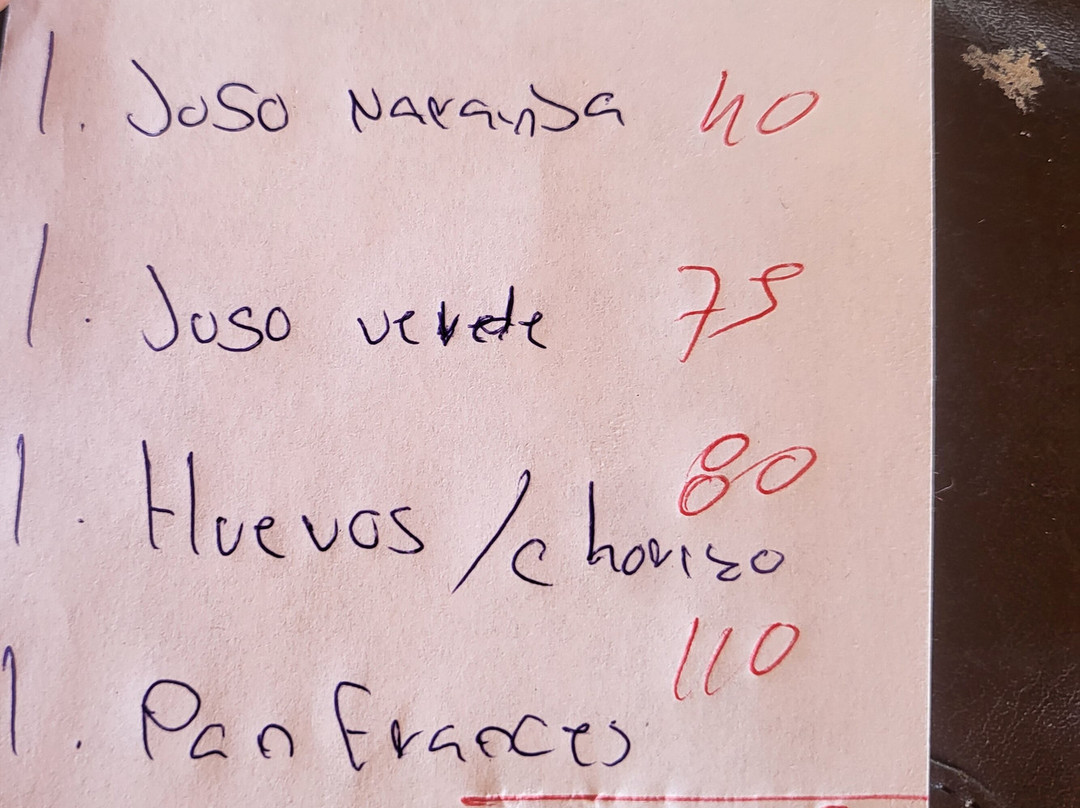 1. Juso Naranja 40
1. Juso verde 75
1. Huevos /chorizo 80
1. Pan frances 110